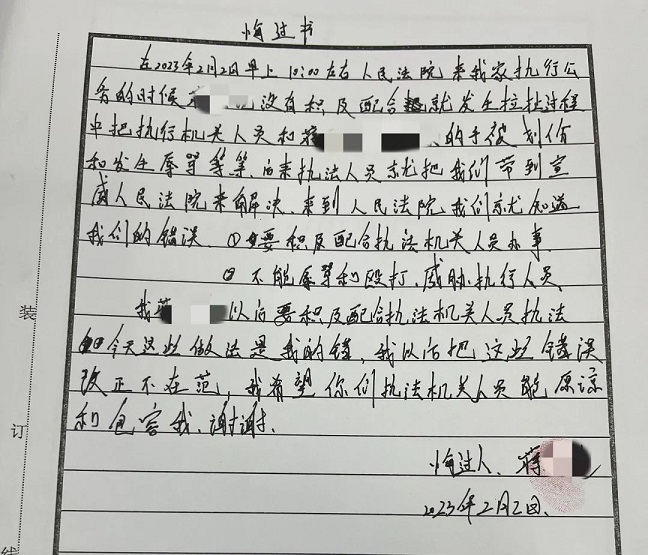 悔过书
在2023年2月2日早上10:00左右人民法院来我家执行公
务的时候 没有积及配合 就发生拉扯过程
中把执行机关人员和蒋 的手被划伤
和发生辱骂等等,后来执法人员就把我们带到宣
威人民法院来解决、来到人民法院我们就知道
我们的错误、①要积及配合执法机关人员办事、
② 不能辱骂和殴打、威胁执行人员、
我蒋 以后要积及配合执法机关人员执法
今天这些做法是我的错,我以后把这些错误
改正不在范,我希望你们执法机关人员能原谅
和包容我、谢谢、
悔过人、蒋
2023年2月2日、
装
订
线